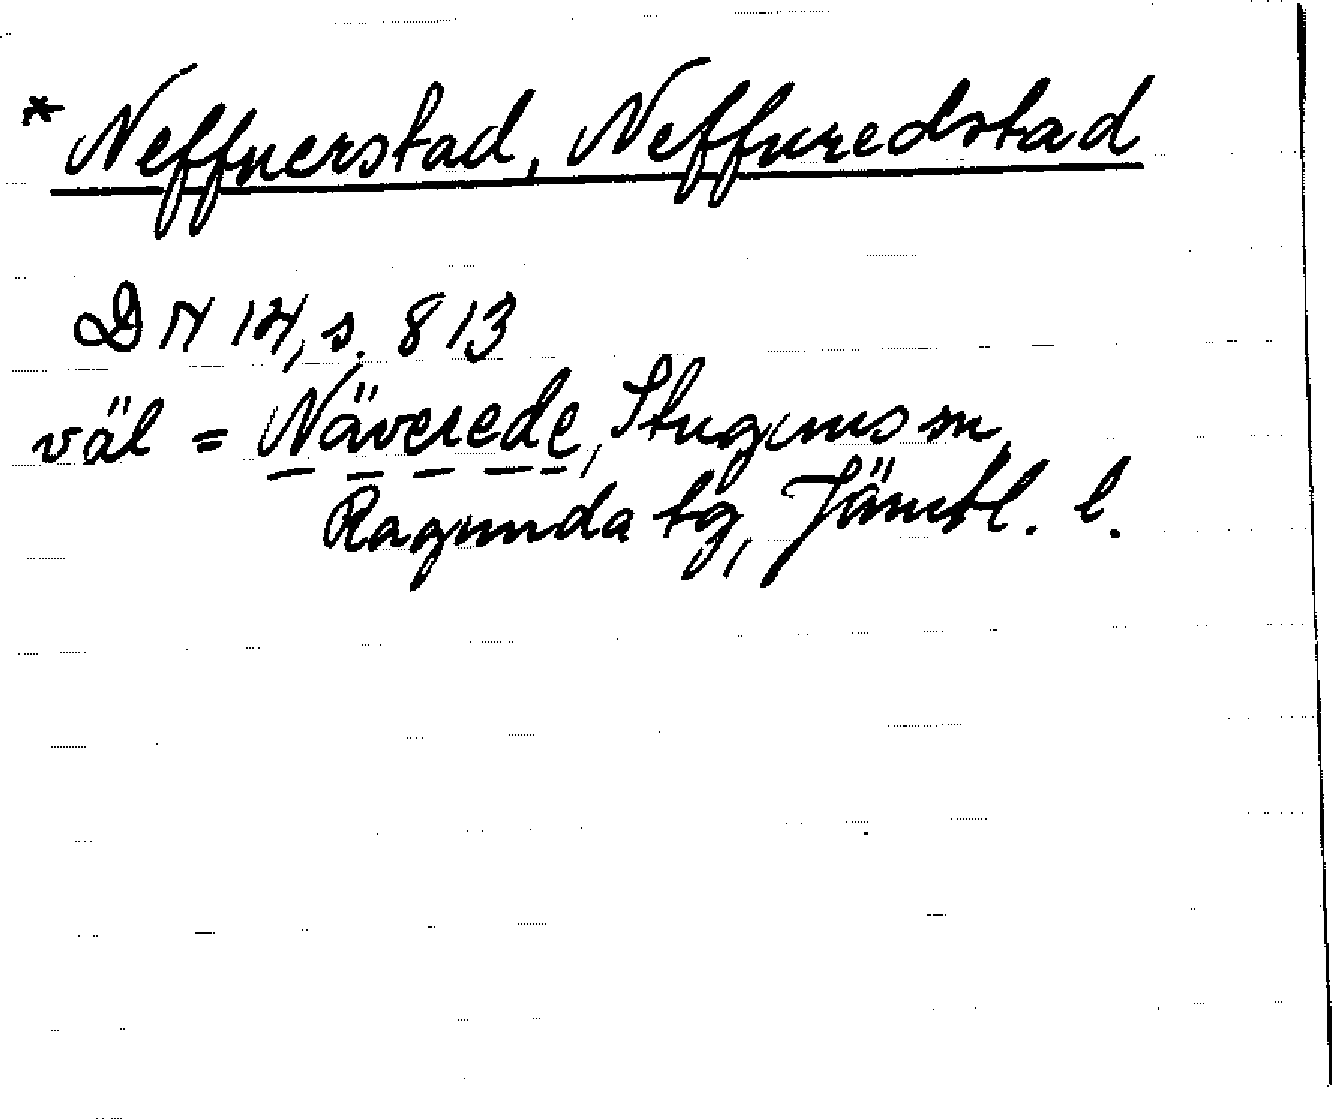 * Neffuerstad, Neffuredstad
DN 14, s. 813
väl = Näverede, Stuguns sn,
Ragunda tg, Jämtl. l.